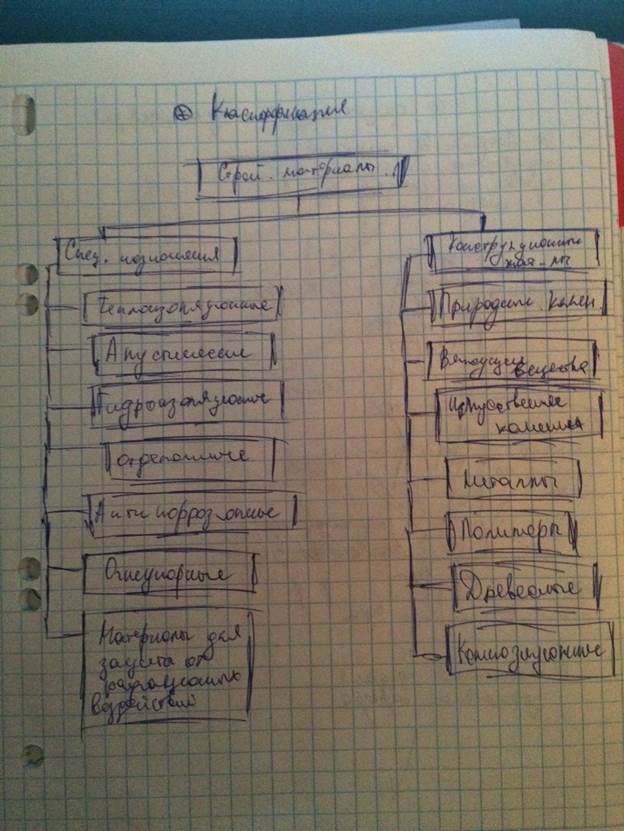 Класиффикация
Строй. материалы.
Спец. назначения
Теплоизоляционные
Акустические
Гидроизоляционные
отделочные
Антикоррозионные
Огнеупорные
Материалы для
защиты от
радиационных
воздействий
Конструкционные
мат-лы
Природные камен.
Вяжущие
вещества
Искусственные
каменные
Металлы
Полимеры
Древесные
Композиционные